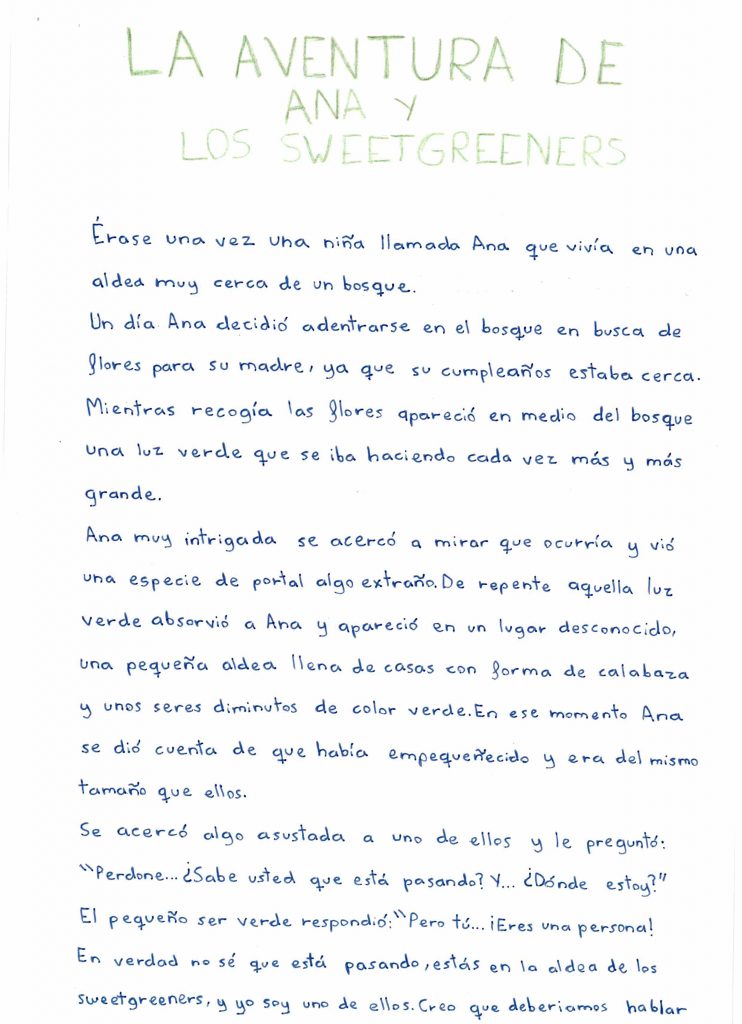 LA AVENTURA DE
ANA Y
LOS SWEETGREENERS
Érase una vez una niña llamada Ana que vivía en una
aldea muy cerca de un bosque.
Un día Ana decidió adentrarse en el bosque en busca de
flores para su madre, ya que su cumpleaños estaba cerca.
Mientras recogía las flores apareció en medio del bosque
una luz verde que se iba haciendo cada vez más y más
grande.
Ana muy intrigada se acercó a mirar que ocurría y vió
una especie de portal algo extraño. De repente aquella luz
verde absorvió a Ana y apareció en un lugar desconocido,
una pequeña aldea llena de casas con forma de calabaza
y unos seres diminutos de color verde. En ese momento Ana
se dió cuenta de que había empequeñecido y era del mismo
tamaño que ellos.
Se acercó algo asustada a uno de ellos y le preguntó:
"Perdone... ¿Sabe usted que está pasando? Y... ¿Dónde estoy?"
El pequeño ser verde respondió: "Pero tú... ¡Eres una persona!
En verdad no sé que está pasando, estás en la aldea de los
sweetgreeners, y yo soy uno de ellos. Creo que deberiamos hablar